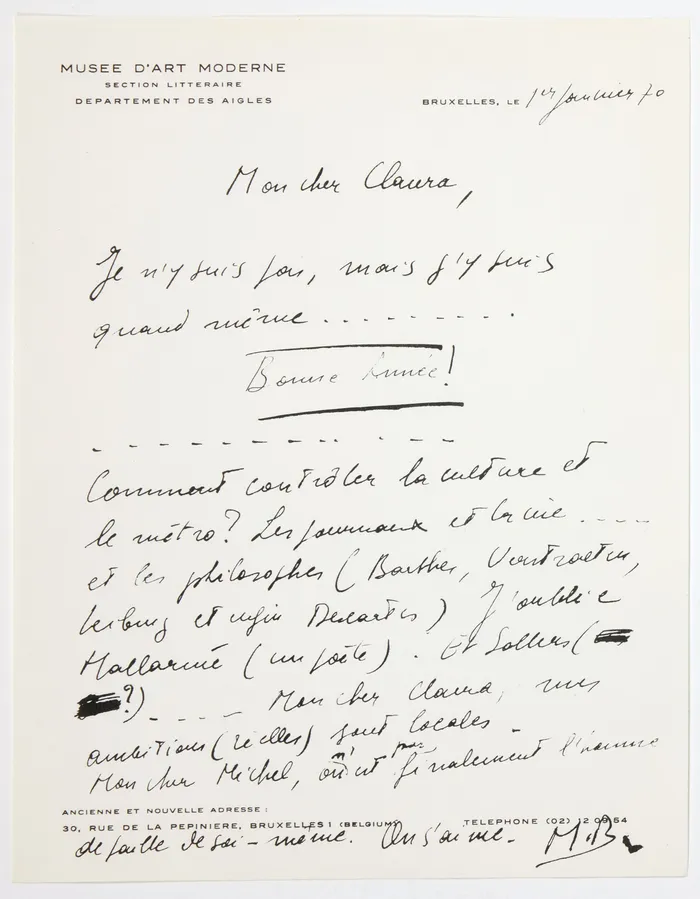 MUSEE D'ART MODERNE
SECTION LITTERAIRE
DEPARTEMENT DES AIGLES
BRUXELLES, LE 1er Janvier 70
Mon cher Claura,
Je n'y suis pas, mais j'y suis
quand même..........
Bonne Année!
Comment contrôler la culture et
le métro? Les journaux et la vie ....
et les philosophes (Barthes, Verstraeten,
Leibniz et enfin Descartes) J'oublie
Mallarmé (un poète). Et Sollers (
?) ---- Mon cher Claura, mes
ambitions (réelles) sont locales -
Mon cher Michel, finalement l'homme
ANCIENNE ET NOUVELLE ADRESSE:
30, RUE DE LA PEPINIERE, BRUXELLES 1 (BELGIUM) TELEPHONE (02)
de paille de soi-même. On s'aime. M.B.